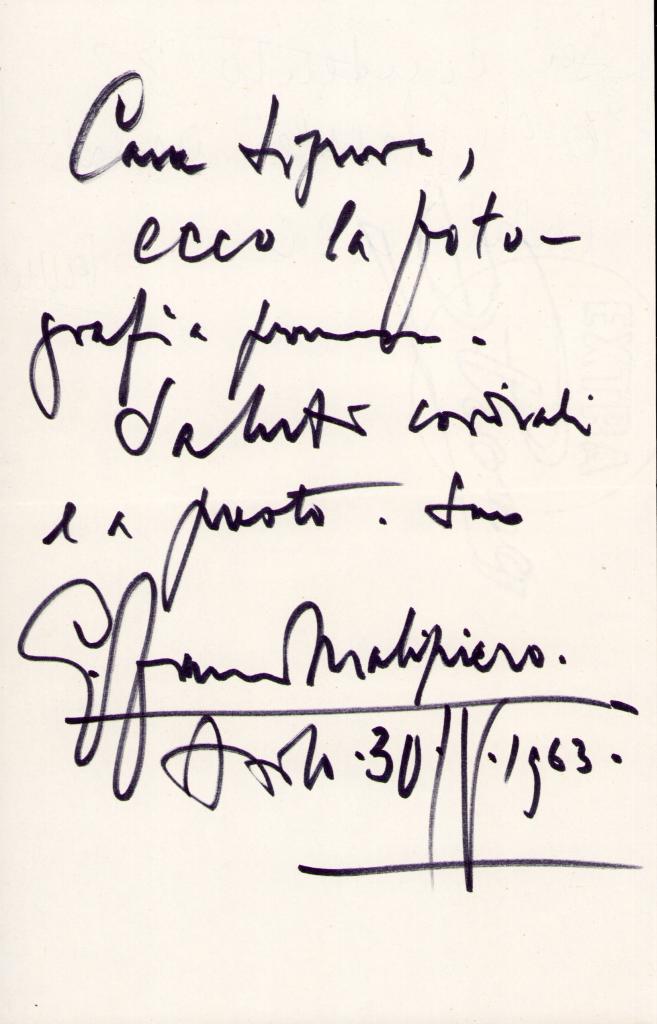 Cara Signora,
ecco la foto-
grafia promessa.
Saluti cordiali
e a presto. Suo
G. Francesco Malipiero.
Asolo. 30. III. 1963.